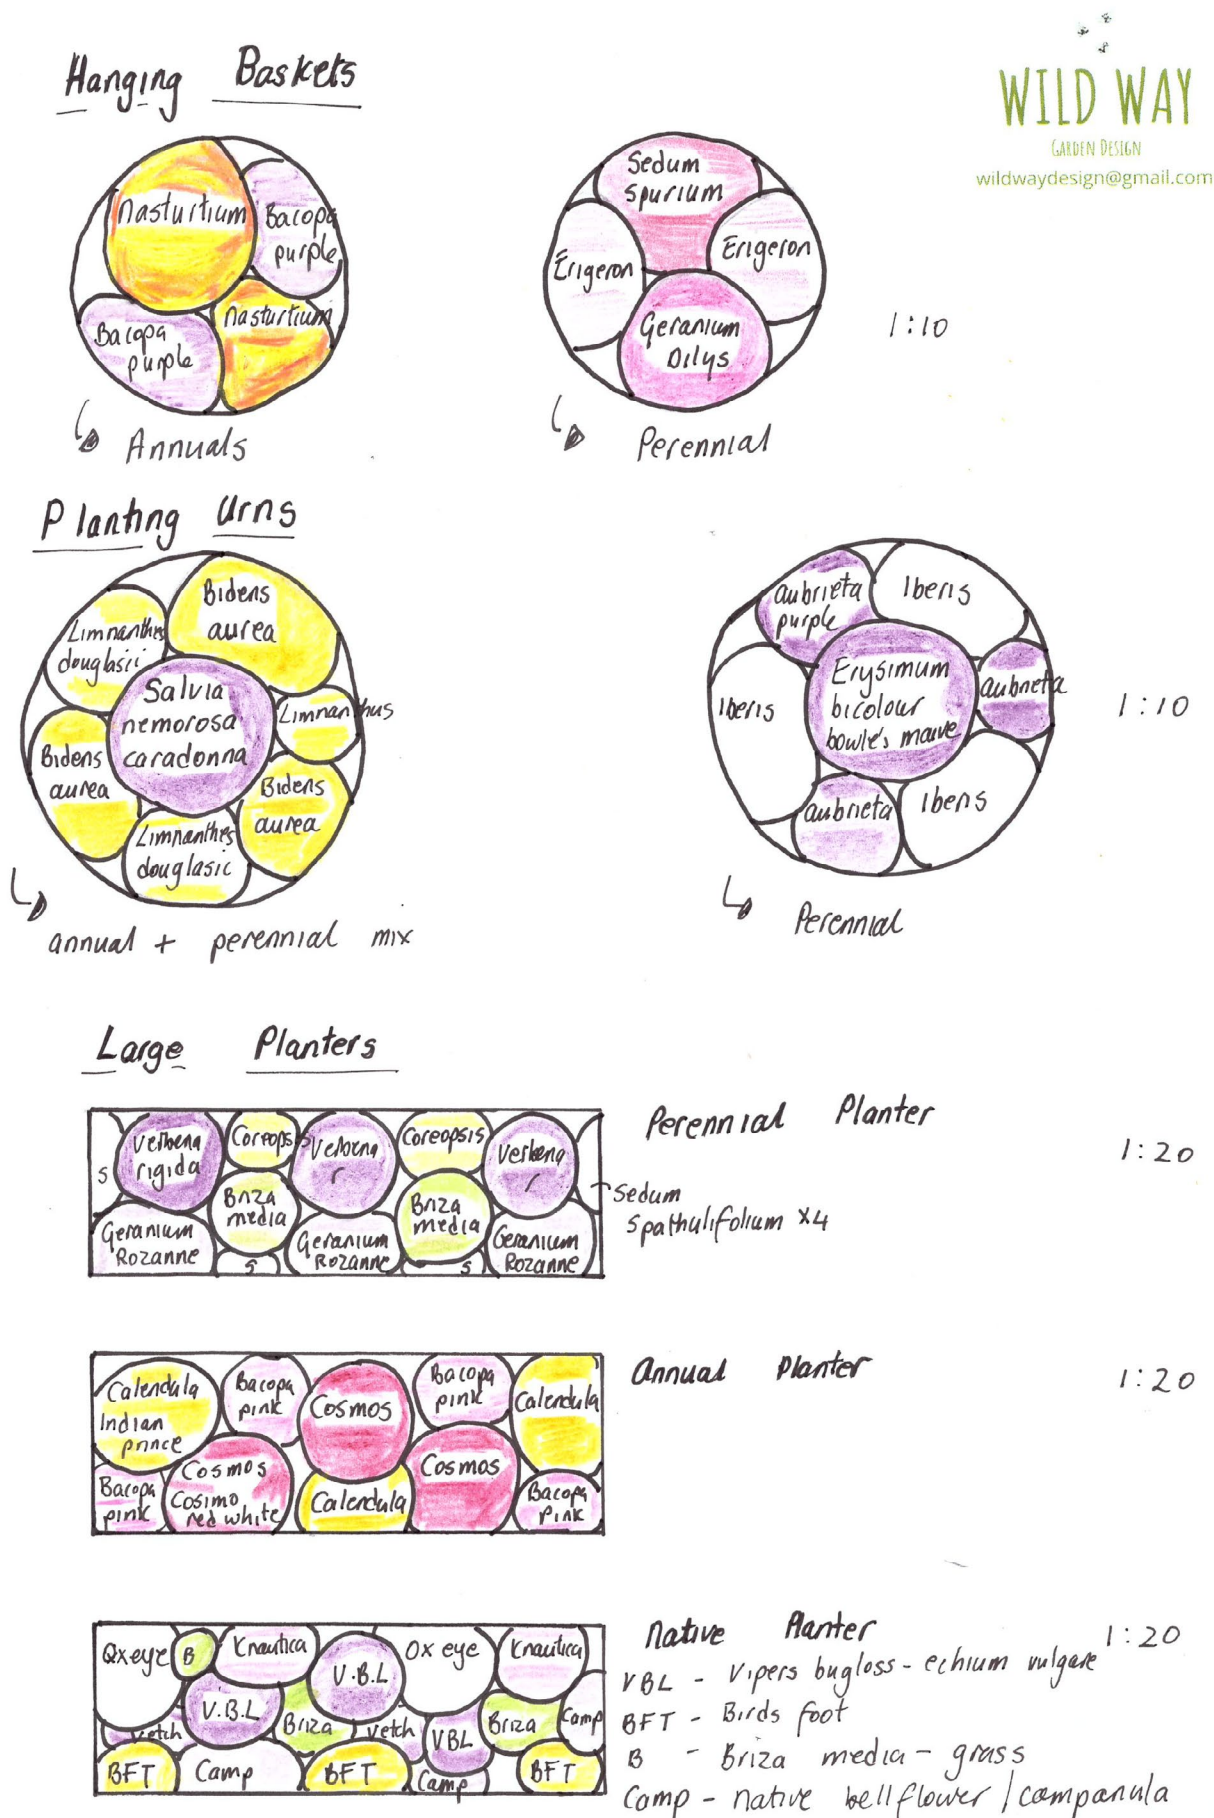 Hanging Baskets
WILD WAY
GARDEN DESIGN
wildwaydesign@gmail.com
Nasturtium
Bacopa
purple
Bacopa
purple
Nasturtium
Annuals
Sedum
Spurium
Erigeron
Erigeron
Geranium
Dilys
Perennial
1:10
Planting Urns
Bidens
aurea
Limnanthes
douglasii
Salvia
nemorosa
caradonna
Limnanthus
Bidens
aurea
Bidens
aurea
Limnanthes
douglasic
annual + perennial mix
aubrieta
purple
Iberis
Erysimum
bicolour
bowle's mauve
aubrieta
Iberis
aubrieta
Iberis
Perennial
1:10
Large Planters
Perennial Planter
1:20
Verbena
rigida
Coreopsis
Verbena
r
Coreopsis
Verbena
r
S
Briza
media
Briza
media
Sedum
spathulifolium x4
Geranium
Rozanne
S
Geranium
Rozanne
S
Geranium
Rozanne
Annual Planter
1:20
Calendula
Indian
prince
Bacopa
pink
Cosmos
Bacopa
pink
Calendula
Bacopa
pink
Cosmos
Cosimo
red white
Calendula
Cosmos
Bacopa
Pink
Native Planter
1:20
Oxeye
B
Knautica
V.B.L
Ox eye
Knautica
Vetch
V.B.L
Briza
Vetch
VBL
Briza
Camp
BFT
Camp
BFT
Camp
BFT
VBL - Vipers bugloss - echium vulgare
BFT - Birds foot
B - Briza media - grass
Camp - native bellflower / campanula